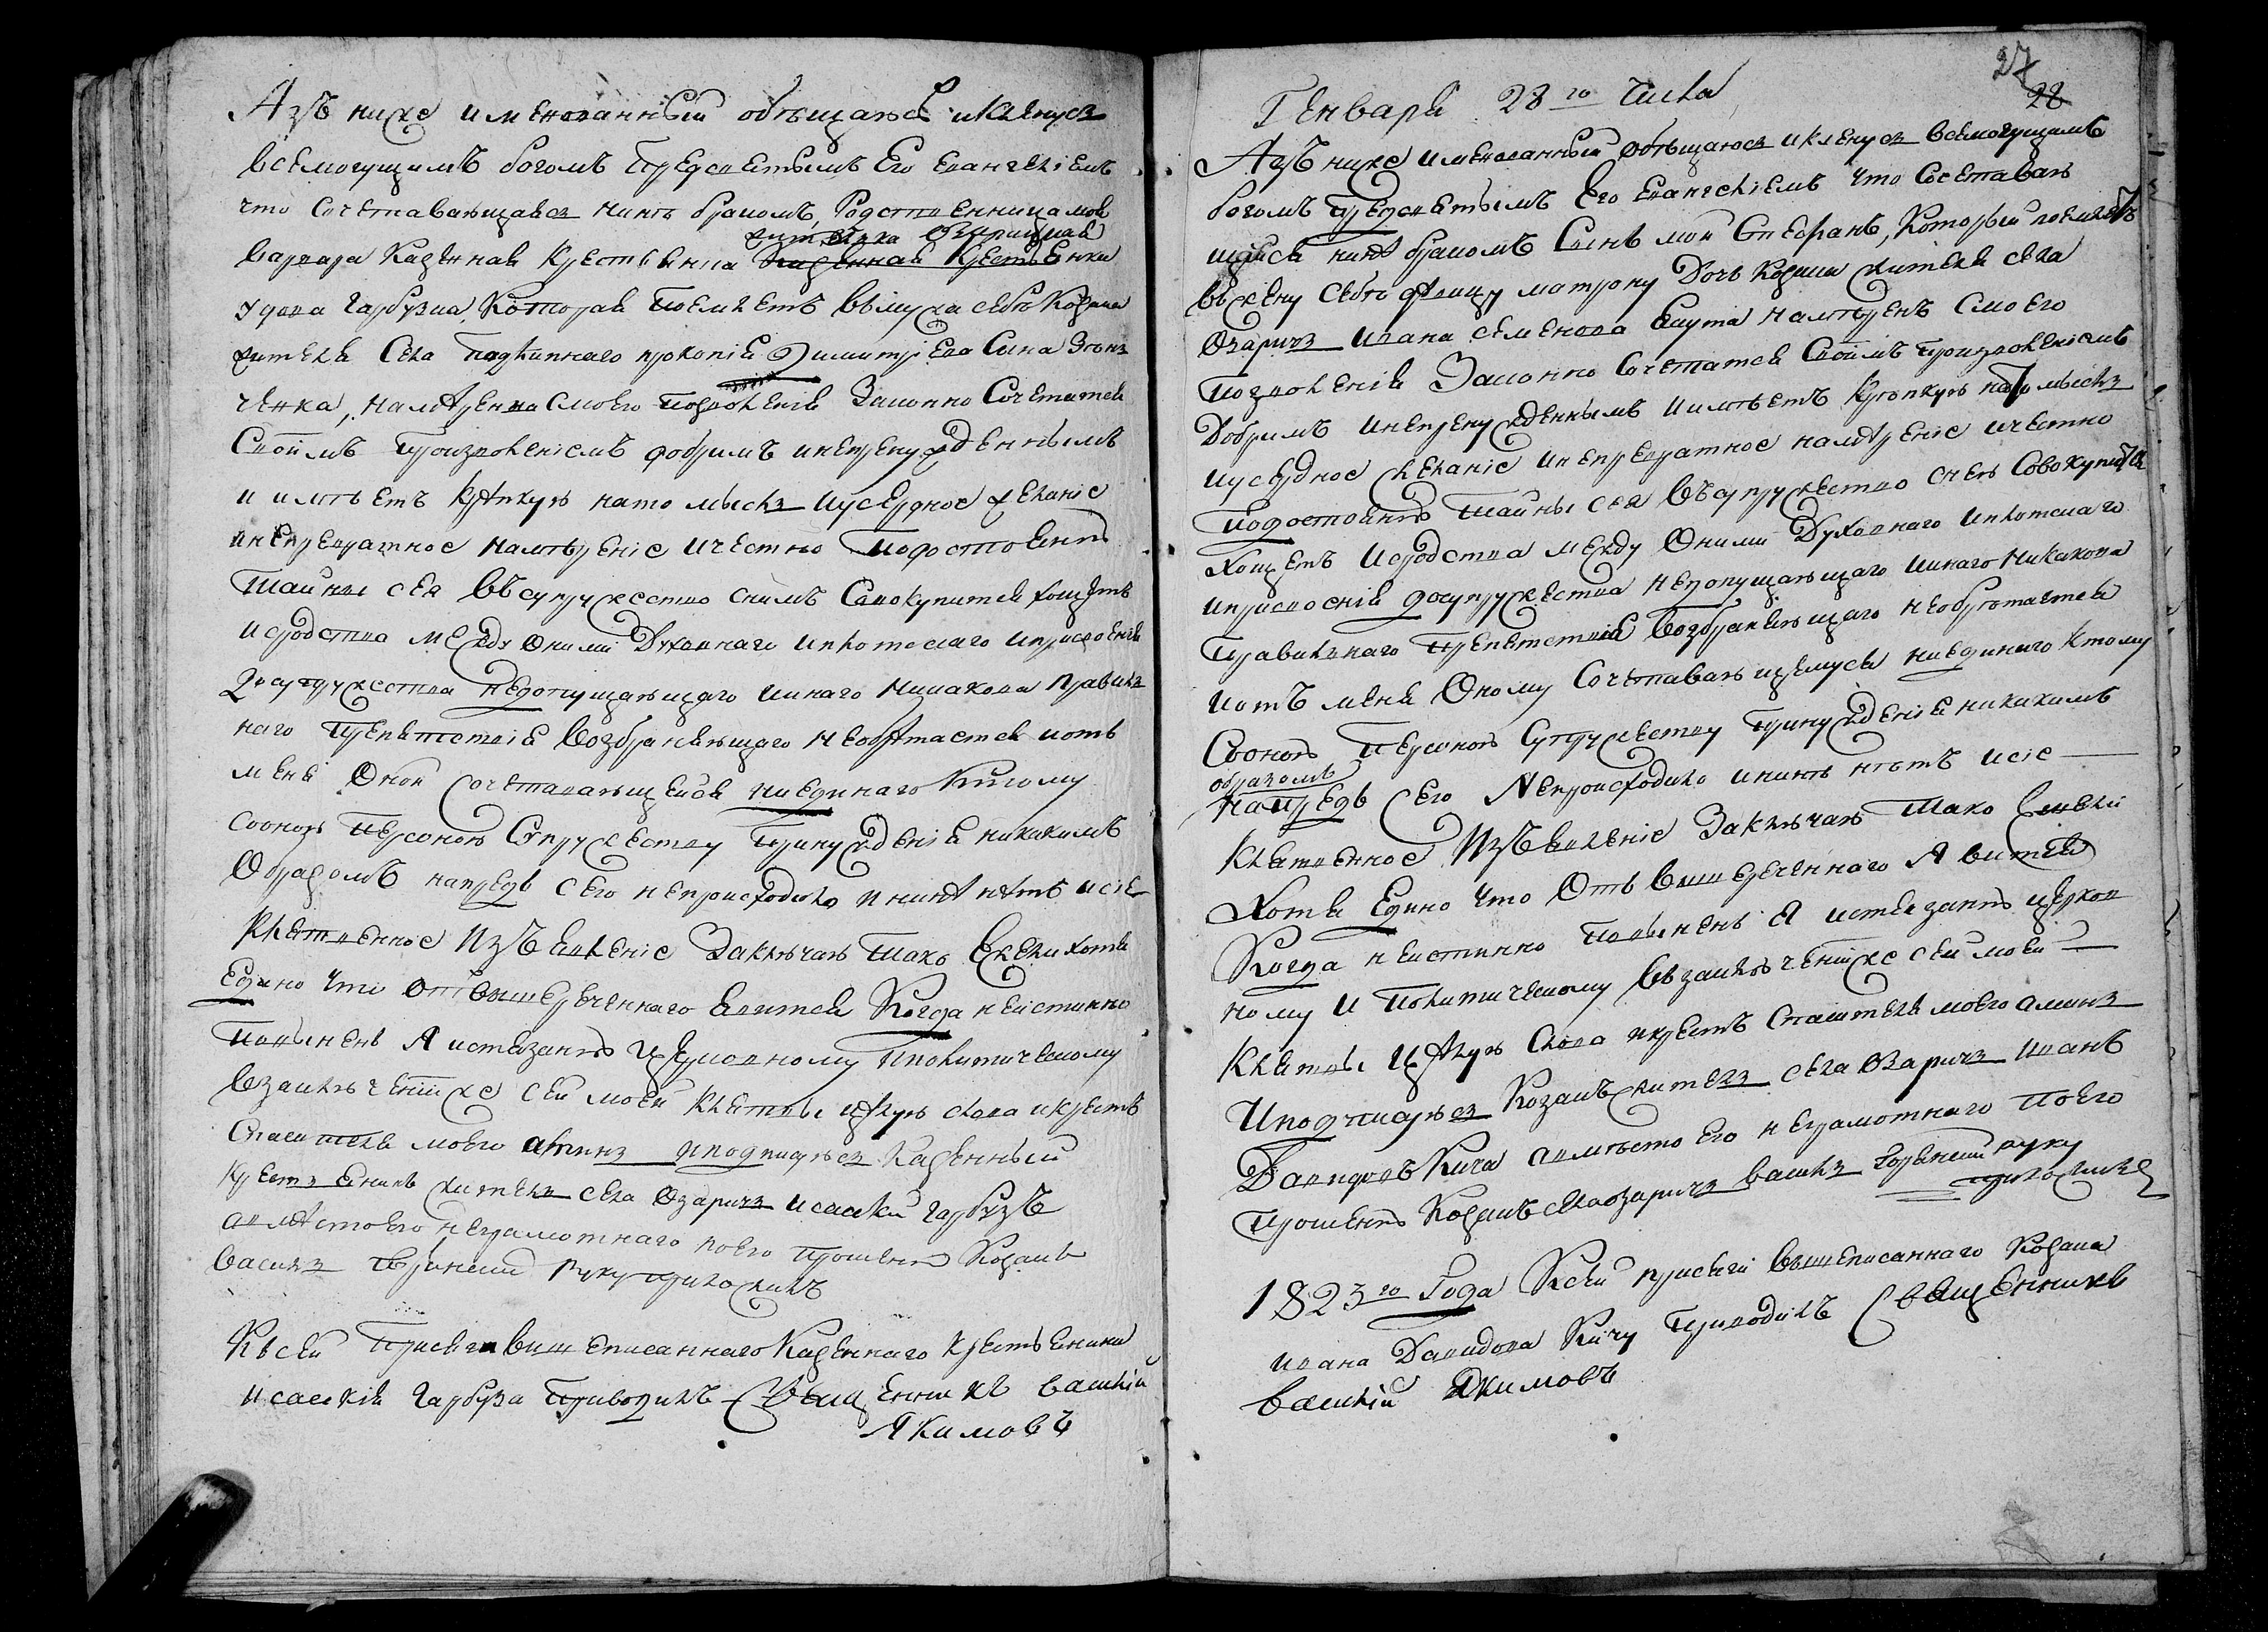 Азъ ниже именованный обѣщаюся и кленусь
всемогущимъ богомъ предсвятымъ Его Евангеліемъ
что сочетавающаяся нинѣ бракомъ, Родственница моя
жителка Озарицкая
варвара казенная крестьянка казенная крестьянка
удова гарбузка, которая поемлетъ въ мужа себѣ козака
жителя села прокопія Димитріева сина
ченка, намѣренна смоего позволенія законно сочетатся
своимъ произволеніемъ добримъ инепренужденнымъ
и имѣетъ крѣпкую на то мысль иусердное желаніе
инепревратное намѣреніе ичестно подостоянъ
тайны сея въ супружество снимъ совокупится хощетъ
исродства между оними духовнаго иплотскаго иприсвоенія
досупружества недопущающаго инаго никакова правиль
наго препятствія возбраняющаго необрѣтается иотъ
меня оной сочетавающейся ниединаго ктому
сооною персоною супружеству принужденія никакимъ
образомъ напредь сего непроисходило и нинѣ нѣтъ исіе
клятвенное изъявленіе заключаю тако Ежели хотя
едино что отвишереченнаго явится когда неистинно
повиненъ я истязанію церковному иполитическому
взаключеніи же сей моей клятвы цѣлую слова икрестъ
спасителя моего аминь иподписуюсь казенный
крестьянинъ житель села Озаричъ исаакій гарбузъ
авмѣсто его неграмотнаго поего прошенію козакъ
василь руку приложилъ
Къ сей присяги вишеписаннаго казеннаго крестьянина
исаакія гарбуза приводилъ священникъ василій
Якимовъ
27
28
Генваря 28го числа
Азъ ниже именованный обѣщаюсь икленусь всемогущимъ
богомъ предсвятымъ Его Евангеліемъ что сочетаваю
щійся нинѣ бракомъ синъ мой Стефанъ, который поемлетъ
въ жену себѣ дѣвицу матрону дочь козака жителя села
Озаричъ ивана семенова намѣренъ смоего
позволенія законно сочетатся своимъ произволеніемъ
добримъ инепренужденнымъ иимѣетъ крѣпкую на то мысль
иусердное желаніе инепревратное намѣреніе ичестно
подостоянъ тайны сея въ супружество снею совокупится
хощетъ исродства между оними духовнаго иплотскаго
иприсвоенія досупружества недопущающаго инаго никакова
правильнаго препятствія возбраняющаго необрѣтается
иотъ меня оному сочетавающемуся ниединаго ктому
сооною персоною супружеству принужденія никакимъ
образомъ
напредь сего непроисходило ининѣ нѣтъ исіе
клятвенное изъявленіе заключаю тако Ежели
хотя едино что отъ вишереченнаго явится
когда неистинно повиненъ я истязанію церков
ному и политическому въ заключеніи же сей моей
клятвы цѣлую слова икрестъ спасителя моего аминь
Иподписуюсь козакъ житель села Озаричъ иванъ
Давидовъ Кича авмѣсто его неграмотнаго поего
прошенію козакъ села озаричъ василь руку
приложилъ
1823го года Ксей присяги вышеписаннаго козака
ивана Давидова Кичу приводилъ священникъ
василій Якимовъ